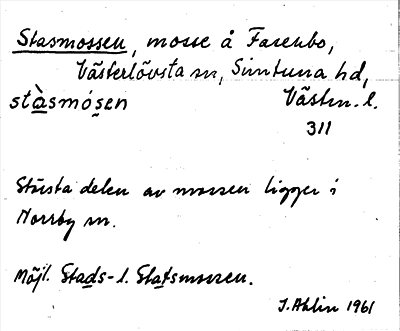 Stasmossen, mosse å Fasenbo,
Västerlövsta sn, Simtuna hd,
stàsmósen Västm. l.
311
Största delen av mossen ligger i
Norrby sn.
Möjl. Stads- l. Statsmossen.
J. Ahlin 1961